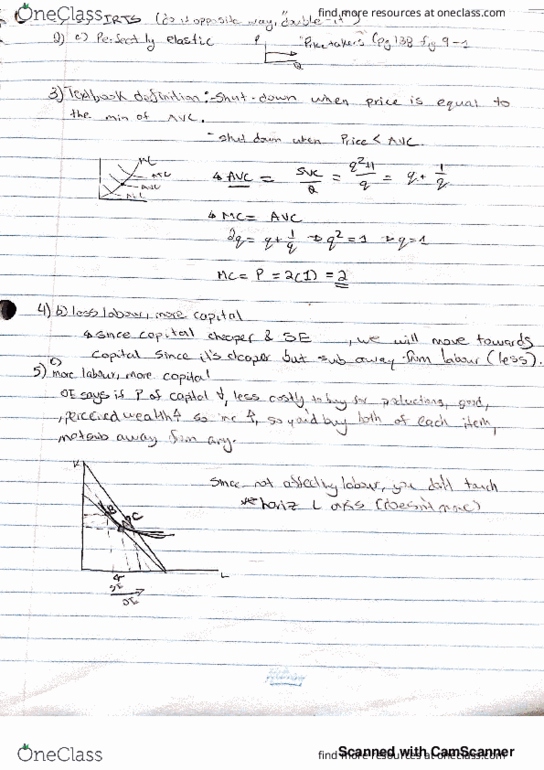 OneClass
find more resources at oneclass.com
IRTS (do opposite way, "double it")
2) c) Perfectly elastic P "Price takers" (pg 138 fig 9-1
Q
3) Textbook definition: - Shut-down when price is equal to
the min of AVC.
- Shut down when Price < AVC.
MC
ATC
AVC
↳ AVC = SVC/Q = q²+1/q = q + 1/q
↳ MC = AVC
2q = q + 1/q → q² = 1 → q = 1
MC = P = 2(1) = 2
4) b) less labour, more capital
↳ since capital cheaper & SE , we will move towards
capital since it's cheaper but sub away from labour (less).
5) c) more labour, more capital
OE says if P of capital ↓, less costly to buy for productions, good,
, perceived wealth ↑ so inc ↑, so you'd buy both of each item,
not sub away from any.
K
Since not affecting labour, you don't touch
horiz L axis (doesn't move)
B
C
L
SE
OE
OneClass
find more resources at oneclass.com
Scanned with CamScanner